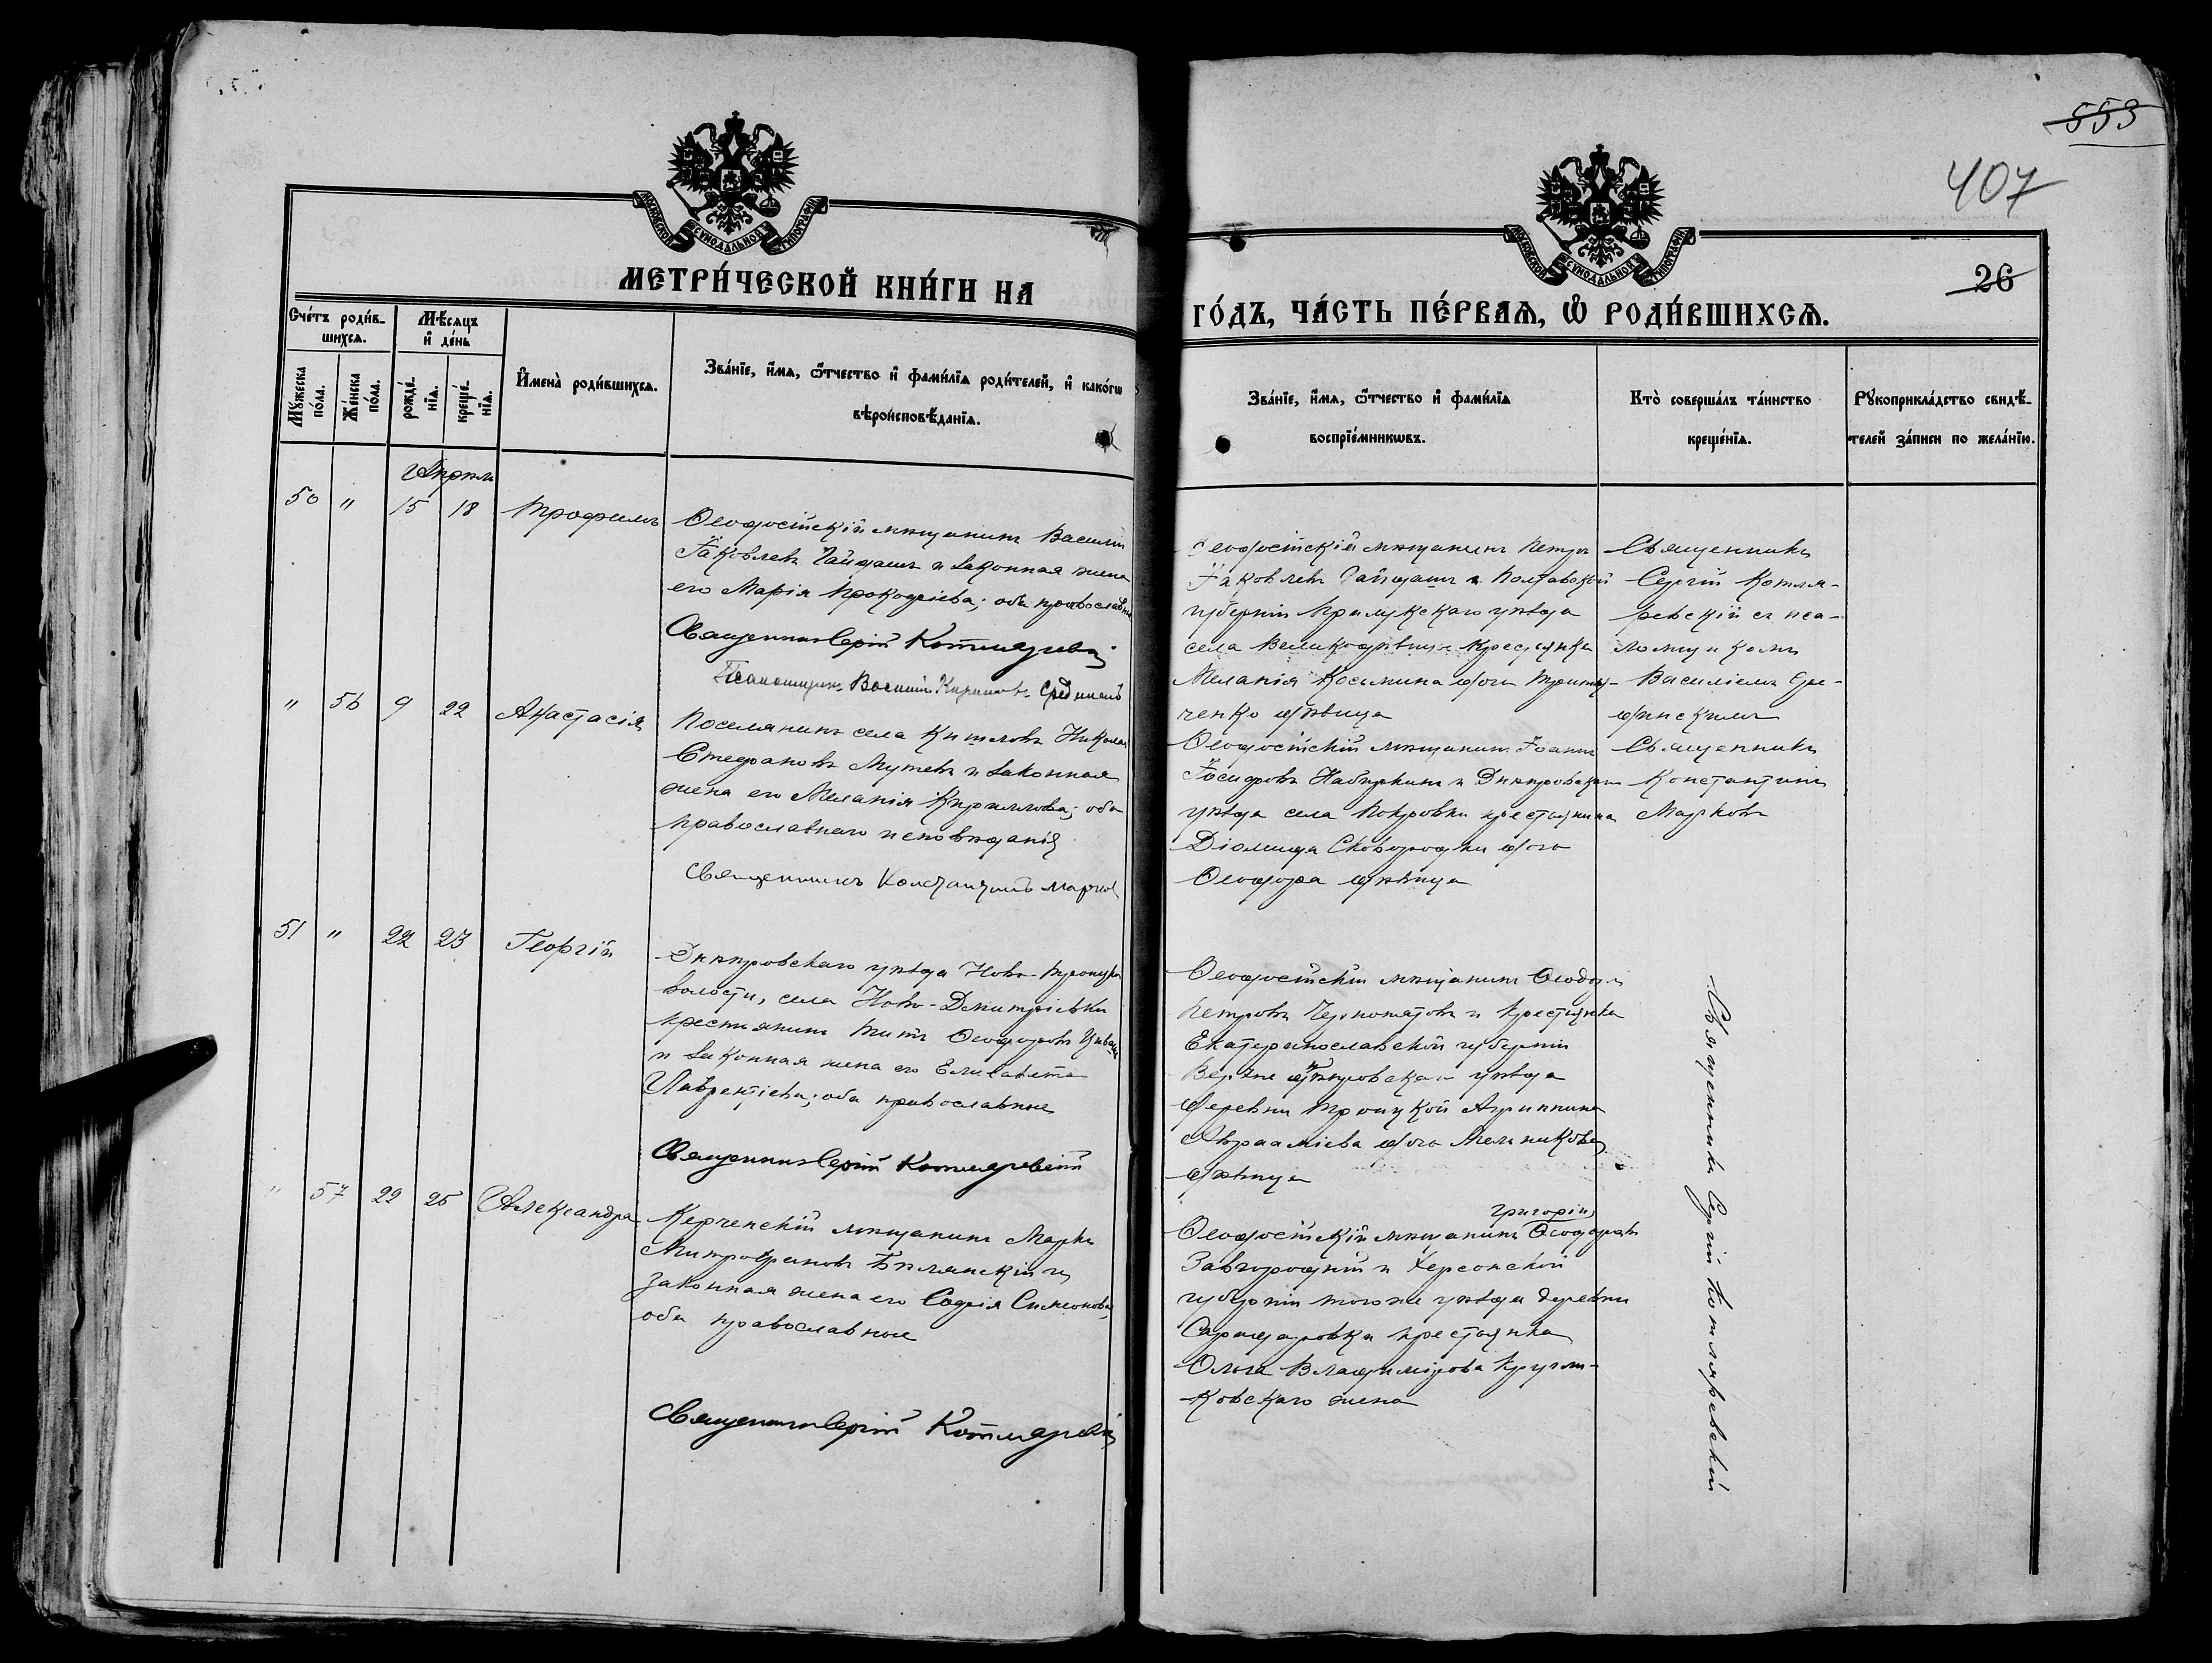 553
407
26
МОСКОВСКОЙ СУНОДАЛЬНОЙ ТИПОГРАФІИ
МОСКОВСКОЙ СУНОДАЛЬНОЙ ТИПОГРАФІИ
МЕТРИ́ЧЕСКОЙ КНИ́ГИ НА
ГО́ДЪ, ЧА́СТЬ ПЕ́РВАѦ, Ѡ҆ РОДИ́ВШИХСѦ.
Сче́тъ роди́в-
шихсѧ.
Мꙋ́жеска по́ла.
Же́нска по́ла.
Мѣ́сѧцъ
и҆ де́нь
рожде́-
нїѧ.
креще́-
нїѧ.
И҆мена̀ роди́вшихсѧ.
Зва́нїе, и҆́мѧ, ѻ҆́тчество и҆ фами́лїѧ роди́телей, и҆ како́гѡ
вѣроисповѣ́данїѧ.
Зва́нїе, и҆́мѧ, ѻ҆́тчество и҆ фами́лїѧ
воспрїе́мникѡвъ.
Кто̀ соверша́лъ та́инство
креще́нїѧ.
Рꙋкоприкла́дство свидѣ́-
телей за́писи по жела́нїю.
Апрѣль
50 " 15 18 Трофимъ
Ѳеодосійскій мѣщанинъ Василій
Іаковлевъ Гайдашъ и законная жена
его Марія Прокофіева; оба православные
Священникъ Сергій Котляревскій
Псаломщикъ Василій
Ѳеодосійскій мѣщанинъ Петръ
Іаковлевъ Гайдашъ и Полтавской
губерніи Прилукскаго уѣзда
села крестьянка
Меланія Косьмина дочь
ченко дѣвица
Священникъ
Сергій Котля-
ревскій съ пса-
ломщикомъ
Василіемъ Сре-
динскимъ
" 56 9 22 Анастасія
Поселянинъ села Кишловъ Николай
Стефановъ Мутевъ и законная
жена его Меланія Кириллова; оба
православнаго исповѣданія
Священникъ Константинъ Марковъ
Ѳеодосійскій мѣщанинъ Іоаннъ
Іосифовъ и Днѣпровскаго
уѣзда села Покровки крестьянина
Діомида Сковородки дочь
Ѳеодора дѣвица
Священникъ
Константинъ
Марковъ
51 " 22 23 Георгій
Днѣпровскаго уѣзда Ново-Троицкой
волости, села Ново-Дмитріевки
крестьянинъ Титъ Ѳеодоровъ
и законная жена его Елисавета
Лаврентіева; оба православные
Священникъ Сергій Котляревскій
Ѳеодосійскій мѣщанинъ Ѳеодоръ
Петровъ и крестьянка
Екатеринославской губерніи
Верхнеднѣпровскаго уѣзда
деревни Троицкой Агриппина
Авраамiева дочь Мельникова
дѣвица
Священникъ Сергій Котляревскій
" 57 22 25 Александра
Керченскій мѣщанинъ Маркъ
Митрофановъ Бѣлянскій и
законная жена его Софія Симеонова,
оба православные
Священникъ Сергій Котляревскій
Григорій
Ѳеодосійскій мѣщанинъ Ѳеодоровъ
Завгородній и Херсонской
губерніи того же уѣзда деревни
крестьянка
Ольга Владимірова
ковскаго жена